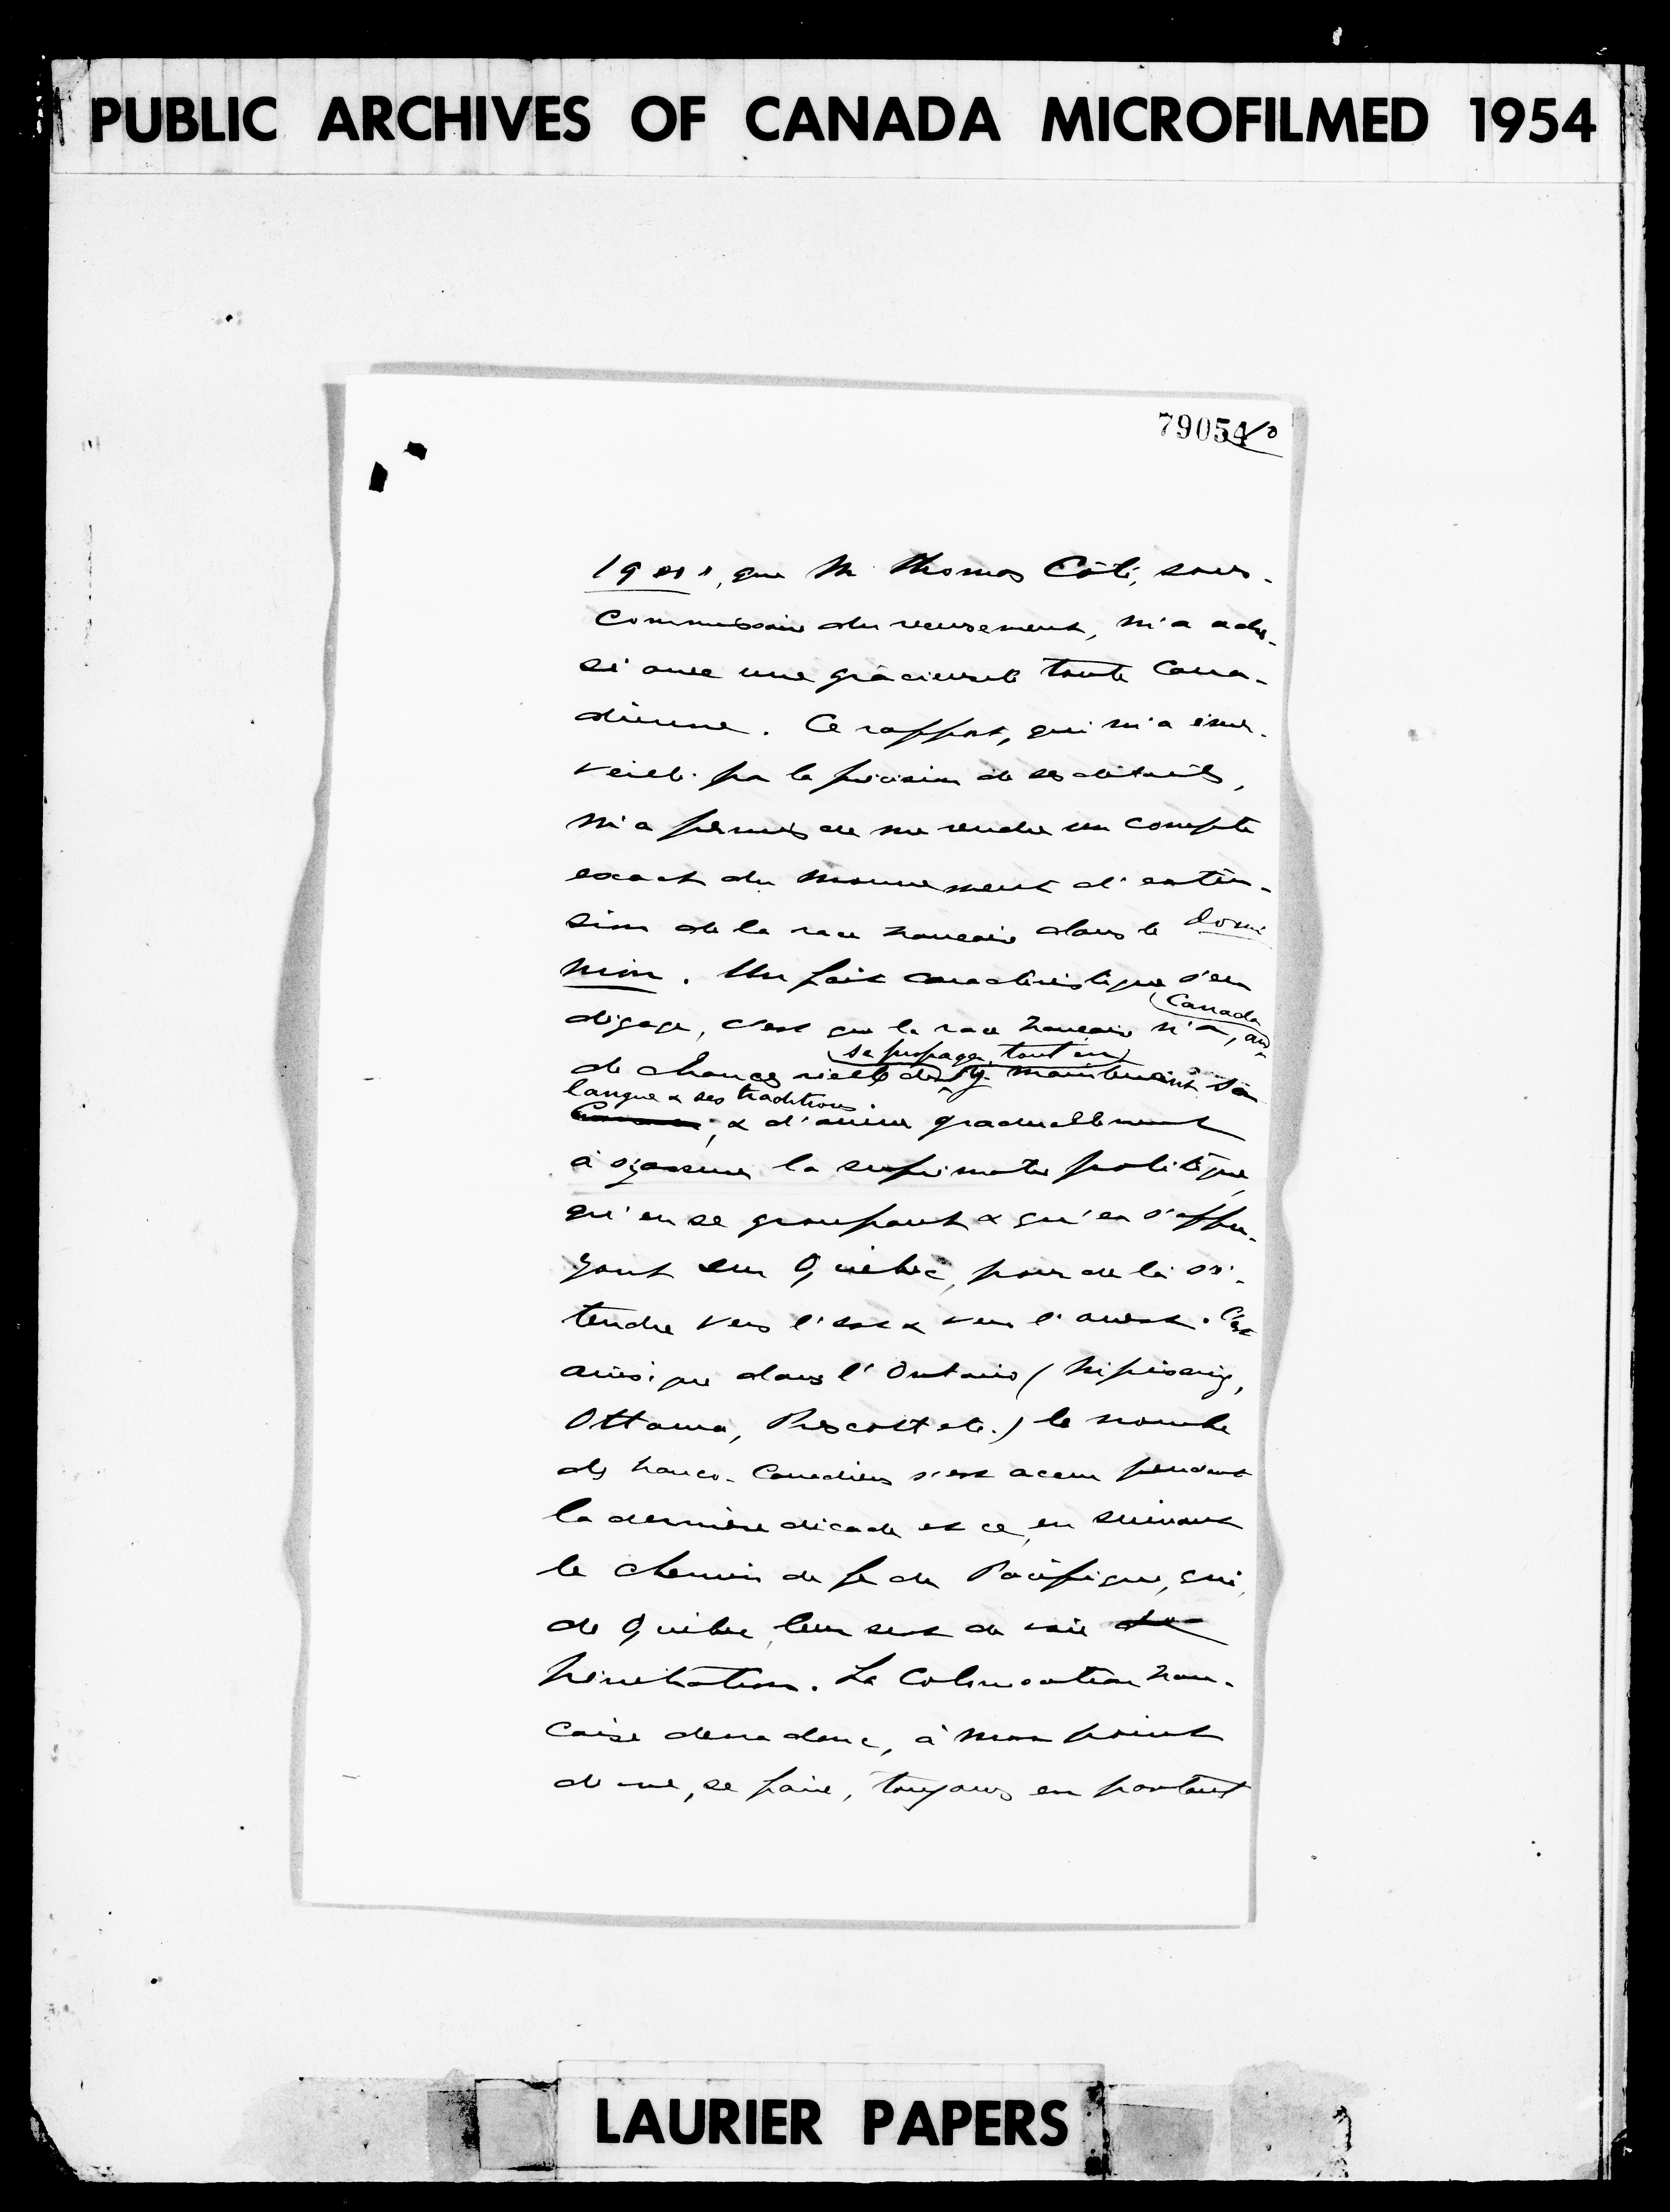 PUBLIC ARCHIVES OF CANADA MICROFILMED 1954
79054
1901, que M. Thomas Côté, sous-
commissaire du recensement, m'a adres-
sé avec une gracieuseté toute cana-
dienne. Ce rapport, qui m'a émer-
veillé par la précision de ses détails,
m'a permis de me rendre un compte
exact du mouvement d'exten-
sion de la race française dans le Domi
nion. Un fait caractéristique s'en
dégage, c'est que la race française n'a, au
Canada
de chances réelles de s'y maintenant sa
se propager, tout en
langue & ses traditions
; & d'arriver graduellement
à s'assurer la suprématie politique,
qu'en se groupant & qu'en s'appu-
yant sur Québec, pour de là s'é-
tendre vers l'est & vers l'ouest. C'est
ainsi que dans l'Ontario (Nipissing,
Ottawa, Prescott etc.) le nombre
des franco-Canadiens s'est accru pendant
la dernière décade et ce, en suivant
le chemin de fer du Pacifique, qui,
de Québec, leur sert de voie de
pénétration. La colonisation fran-
çaise devra donc, à mon point
de vue, se faire, toujours en partant
LAURIER PAPERS